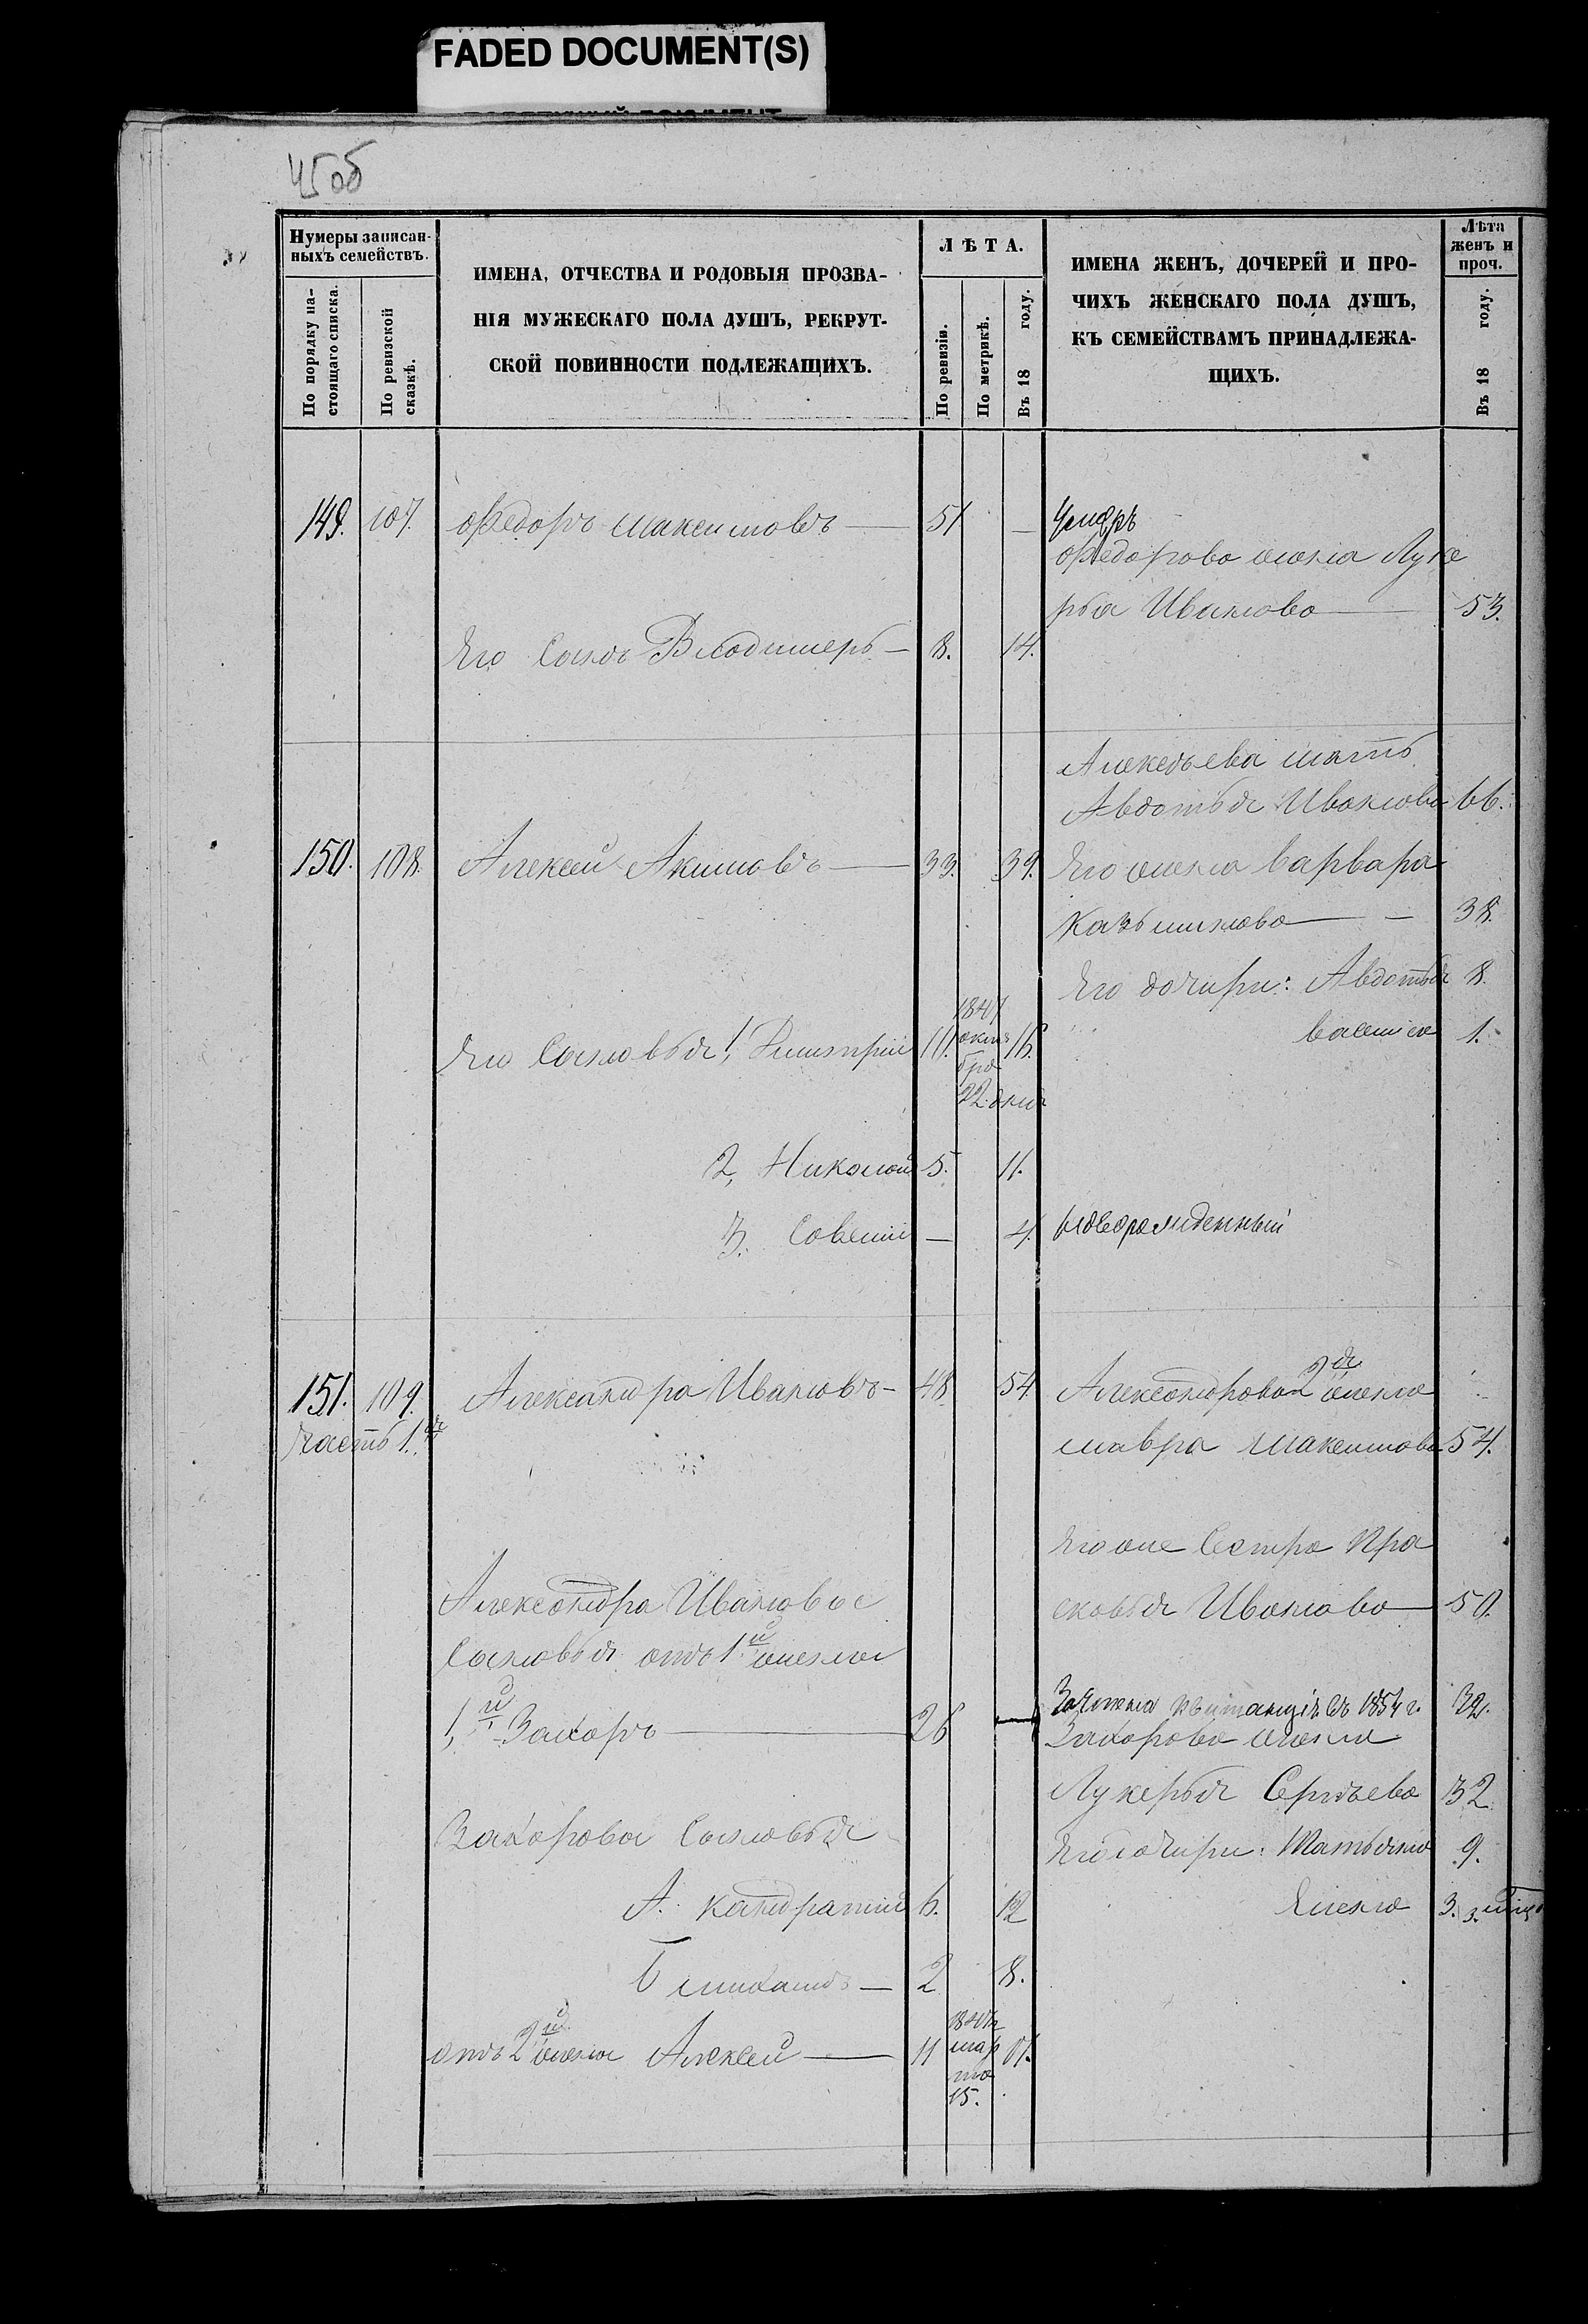 FADED DOCUMENT(S)
45об
Нумеры записан-
ныхъ семействъ.
По порядку на-
стоящаго списка.
По ревизской
сказкѣ.
ИМЕНА, ОТЧЕСТВА И РОДОВЫЯ ПРОЗВА-
НІЯ МУЖЕСКАГО ПОЛА ДУШЪ, РЕКРУТ-
СКОЙ ПОВИННОСТИ ПОДЛЕЖАЩИХЪ.
ЛѢТА.
По ревизіи.
По метрикѣ.
Въ 18 году.
ИМЕНА ЖЕНЪ, ДОЧЕРЕЙ И ПРО-
ЧИХЪ ЖЕНСКАГО ПОЛА ДУШЪ,
КЪ СЕМЕЙСТВАМЪ ПРИНАДЛЕЖА-
ЩИХЪ.
Лѣта
женъ и
проч.
Въ 18 году.
149. 107. Федоръ Максимовъ — 51 — Умеръ
Федорова жена Луке
рья Иванова — 53.
Его Сынъ Владимеръ — 8. 14.
Алексѣева мать
Авдотья Иванова 66.
150. 108. Алексей Акимовъ — 33. 39. Его жена Варвара
Казьминова — 38.
Его дочири: Авдотья 8.
Его Сыновья 1, Димитрий 11. 1841 октя бря 22 дня 16.
1.
2, Николай 5. 11.
3. Савелий — 4. новорожденный
151. 109. Александра Ивановъ — 48 54 Александрова 2я жена
часть 1.я
Мавра Максимова 54.
Его же Сестра Пра
сковья Иванова — 50.
Александра Иванова
Сыновья отъ 1й жены
1,й Захаръ — 26 — квитанція въ 1854 г. 32.
Захарова жена
Лукерья Сергѣева 32
Захарова Сыновья
Его дочири: Татьяна 9.
А. Кандратий 6. 12
Елена 3.
Б Михаилъ — 2 8.
отъ 2й жены Алексей — 11 мар та 15.